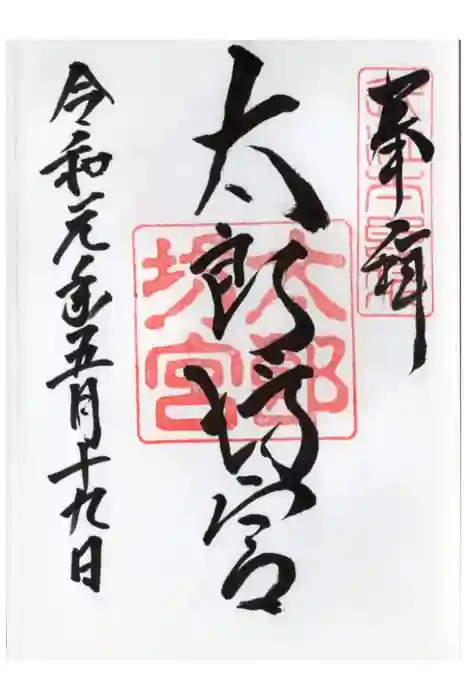 奉拝
太郎坊宮
太郎
坊宮
令和元年五月十九日